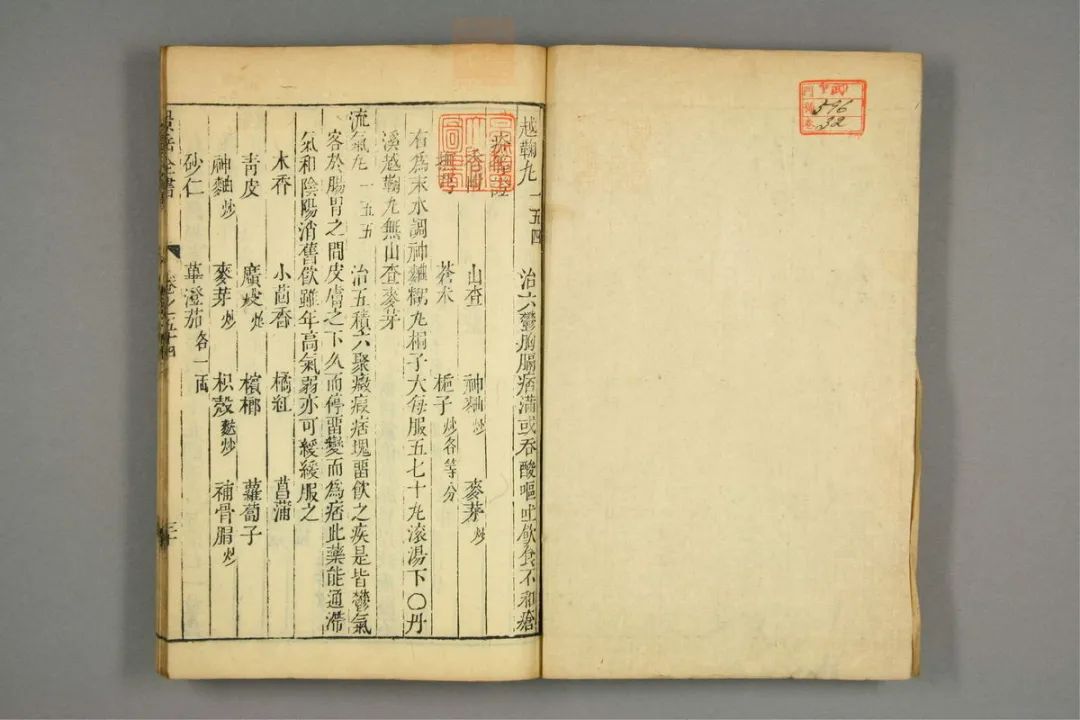 門
號 596
卷 32
越鞠丸 一五四 治六鬱胸膈痞滿或吞酸嘔吐飲食不和瘡
疥等症
香附 山查 神麯炒 麥芽炒
撫芎 蒼朮 梔子炒各等分
右為末水調神麯糊丸梧子大每服五七十丸滾湯下〇丹
溪越鞠丸無山查麥芽
流氣丸 一五五 治五積六聚癥瘕痞塊畱飲之疾是皆鬱氣
客於腸胃之間皮膚之下久而停畱變而為痞此藥能通滯
氣和陰陽消舊飲雖年高氣弱亦可緩緩服之
木香 小茴香 橘紅 菖蒲
青皮 廣 炒 檳榔 蘿蔔子
神麯炒 麥芽炒 枳殼麩炒 補骨脂炒
砂仁 蓽澄茄各一兩
景岳全書 卷之五十四